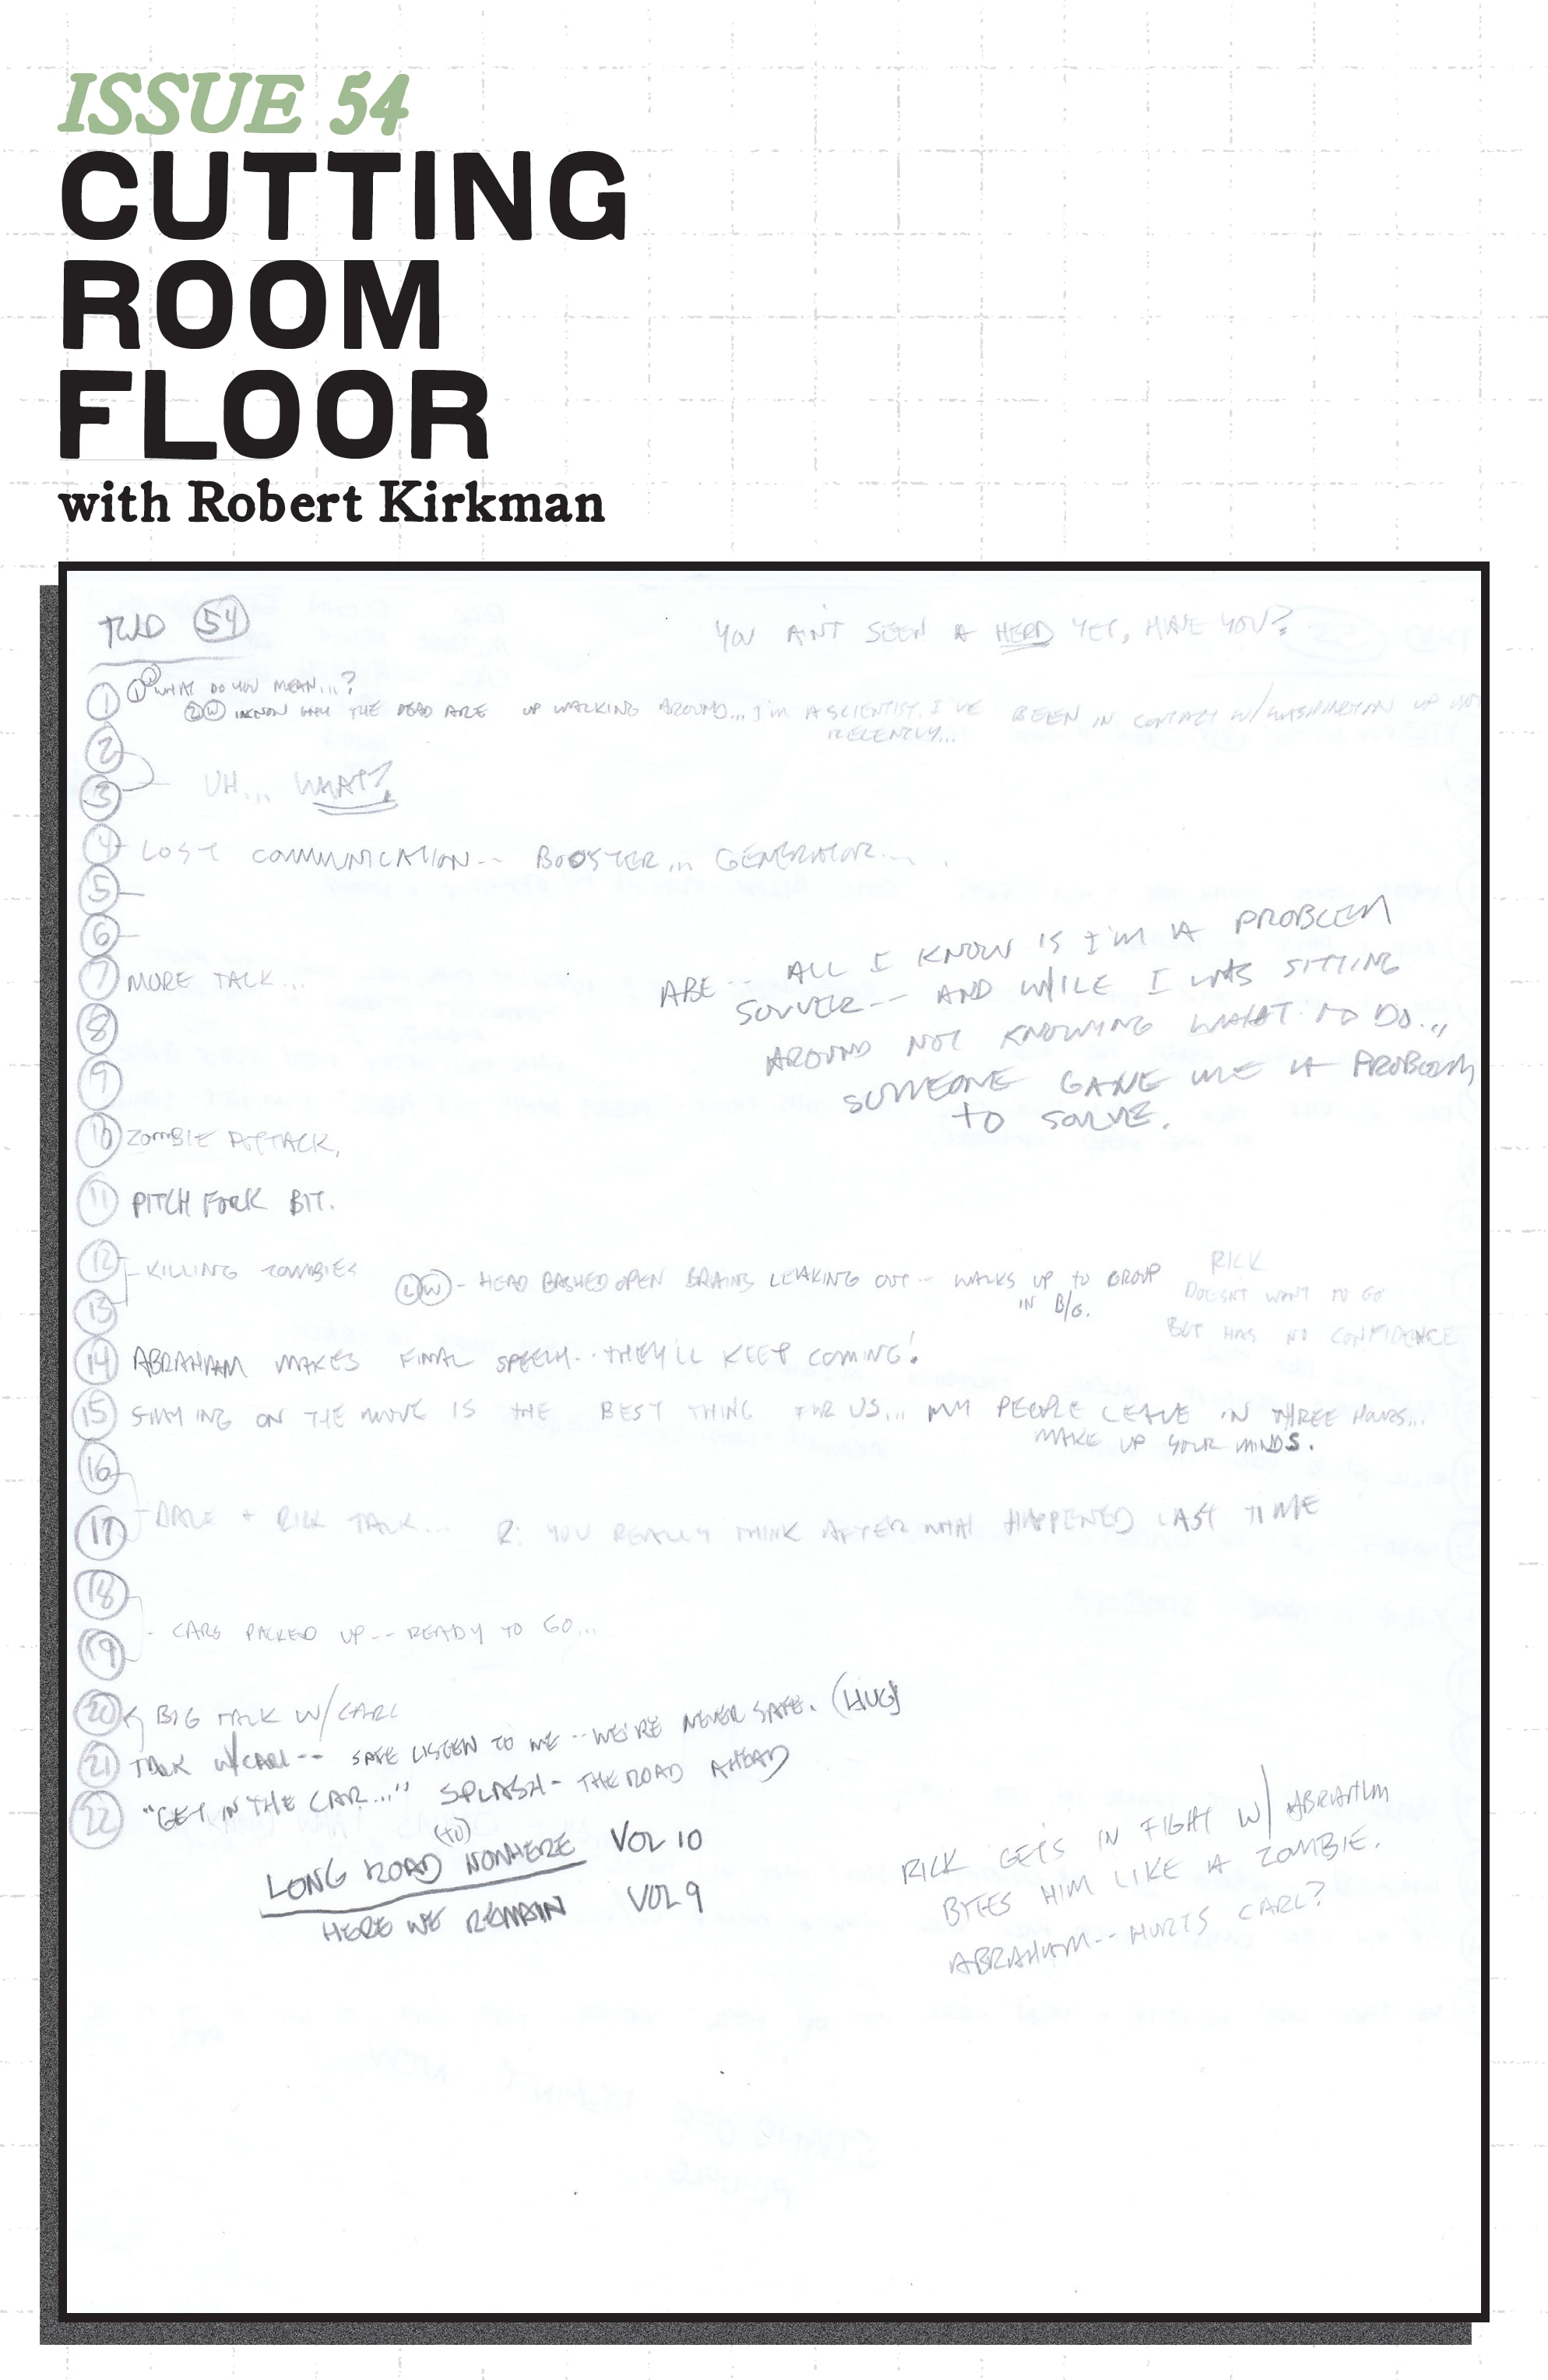 ISSUE 54
CUTTING
ROOM
FLOOR
with Robert Kirkman
TWD 54
YOU AIN'T SEEN A HERD YET, HAVE YOU?
1 1 WHAT DO YOU MEAN...?
2 W I KNOW WHY THE DEAD ARE UP WALKING AROUND... I'M A SCIENTIST. I'VE BEEN IN CONTACT W/WASHINGTON UP
RECENTLY...
2
3 UH... WHAT?
4 LOST COMMUNICATION-- BOOSTER... GENERATOR...
5
6
7 MORE TALK...
ABE ALL I KNOW IS I'M A PROBLEM
SOLVER-- AND WILE I WAS SITTING
AROUND NOT KNOWING WHAT TO DO...
SOMEONE GAVE ME A PROBLEM
TO SOLVE.
8
9
10 ZOMBIE ATTACK.
11 PITCH FORK BIT.
12 KILLING ZOMBIES
13
LW - HEAD BASHED OPEN BRAINS LEAKING OUT-- WALKS UP TO GROUP
IN B/G.
RICK
DOESN'T WANT TO GO
BUT HAS NO CONFIDENCE
14 ABRAHAM MAKES FINAL SPEECH-- THEY'LL KEEP COMING!
15 STAYING ON THE MOVE IS THE BEST THING FOR US... MY PEOPLE LEAVE IN THREE HOURS...
MAKE UP YOUR MINDS.
16
17 DALE + RICK TALK... R: YOU REALLY THINK AFTER WHAT HAPPENED LAST TIME
18
19 CARS PACKED UP-- READY TO GO...
20 BIG TALK W/CARL
21 TALK W/CARL-- SAFE LISTEN TO ME--WE'RE NEVER SAFE. (HUG)
22 "GET IN THE CAR..." SPLASH- THE ROAD AHEAD
(TO)
LONG ROAD NOWHERE VOL 10
HERE WE REMAIN VOL 9
RICK GETS IN FIGHT W/ ABRAHAM
BYTES HIM LIKE A ZOMBIE.
ABRAHAM-- HURTS CARL?